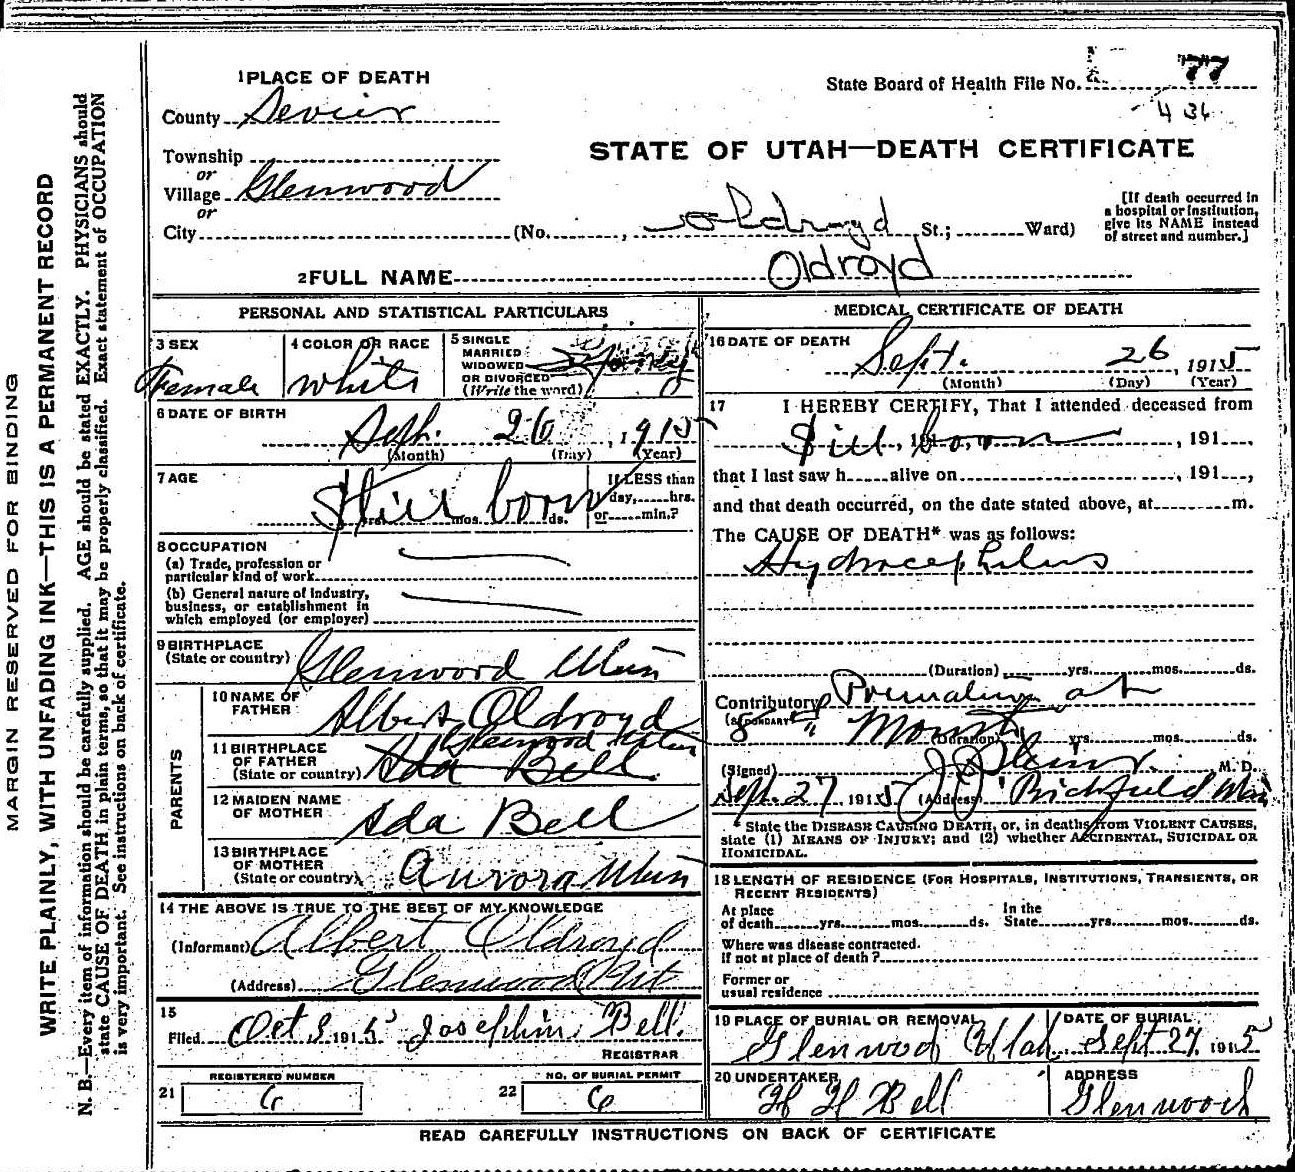 MARGIN RESERVED FOR BINDING
WRITE PLAINLY, WITH UNFADING INK—THIS IS A PERMANENT RECORD
N. B.—Every item of information should be carefully supplied. AGE should be stated EXACTLY. PHYSICIANS should
state CAUSE OF DEATH in plain terms, so that it may be properly classified. Exact statement of OCCUPATION
is very important. See instructions on back of certificate.
1 PLACE OF DEATH
State Board of Health File No. 77
436
County Sevier
STATE OF UTAH—DEATH CERTIFICATE
Township
or
Village Glenwood
or
City (No. , Oldroyd St.; Ward)
[If death occurred in
a hospital or institution,
give its NAME instead
of street and number.]
2 FULL NAME Oldroyd
PERSONAL AND STATISTICAL PARTICULARS
3 SEX
Female
4 COLOR OR RACE
White
5 SINGLE
MARRIED
WIDOWED
OR DIVORCED
(Write the word)
6 DATE OF BIRTH
Sept. 26, 1915
(Month) (Day) (Year)
7 AGE
If LESS than
day, hrs.
or min.?
Still born
mos. ds.
8 OCCUPATION
(a) Trade, profession or
particular kind of work
(b) General nature of industry,
business, or establishment in
which employed (or employer)
9 BIRTHPLACE
(State or country) Glenwood Utah
PARENTS
10 NAME OF
FATHER Albert Oldroyd
11 BIRTHPLACE
OF FATHER
(State or country)
Glenwood Utah
Ada Bell
12 MAIDEN NAME
OF MOTHER Ada Bell
13 BIRTHPLACE
OF MOTHER
(State or country) Aurora Utah
14 THE ABOVE IS TRUE TO THE BEST OF MY KNOWLEDGE
(Informant) Albert Oldroyd
(Address) Glenwood Ut
15
Filed Oct 3 1915 Josephine Bell.
REGISTRAR
REGISTERED NUMBER
21 6
NO. OF BURIAL PERMIT
22 6
MEDICAL CERTIFICATE OF DEATH
16 DATE OF DEATH
Sept. 26, 1915
(Month) (Day) (Year)
17 I HEREBY CERTIFY, That I attended deceased from
Still born, 191
that I last saw h alive on , 191 ,
and that death occurred, on the date stated above, at m.
The CAUSE OF DEATH* was as follows:
Hydrocephilus
(Duration) yrs. mos. ds.
Contributory Premature at
(SECONDARY) Month
(Duration) yrs. mos. ds.
(Signed) M. D.
Sept. 27 1915 (Address) Richfield Utah
*State the DISEASE CAUSING DEATH, or, in deaths from VIOLENT CAUSES,
state (1) MEANS OF INJURY; and (2) whether ACCIDENTAL, SUICIDAL OR
HOMICIDAL.
18 LENGTH OF RESIDENCE (FOR HOSPITALS, INSTITUTIONS, TRANSIENTS, OR
RECENT RESIDENTS)
At place
of death yrs. mos. ds.
In the
State yrs. mos. ds.
Where was disease contracted.
If not at place of death?
Former or
usual residence
19 PLACE OF BURIAL OR REMOVAL
Glenwood Utah
DATE OF BURIAL
Sept 27, 1915
20 UNDERTAKER
H H Bell
ADDRESS
Glenwood
READ CAREFULLY INSTRUCTIONS ON BACK OF CERTIFICATE